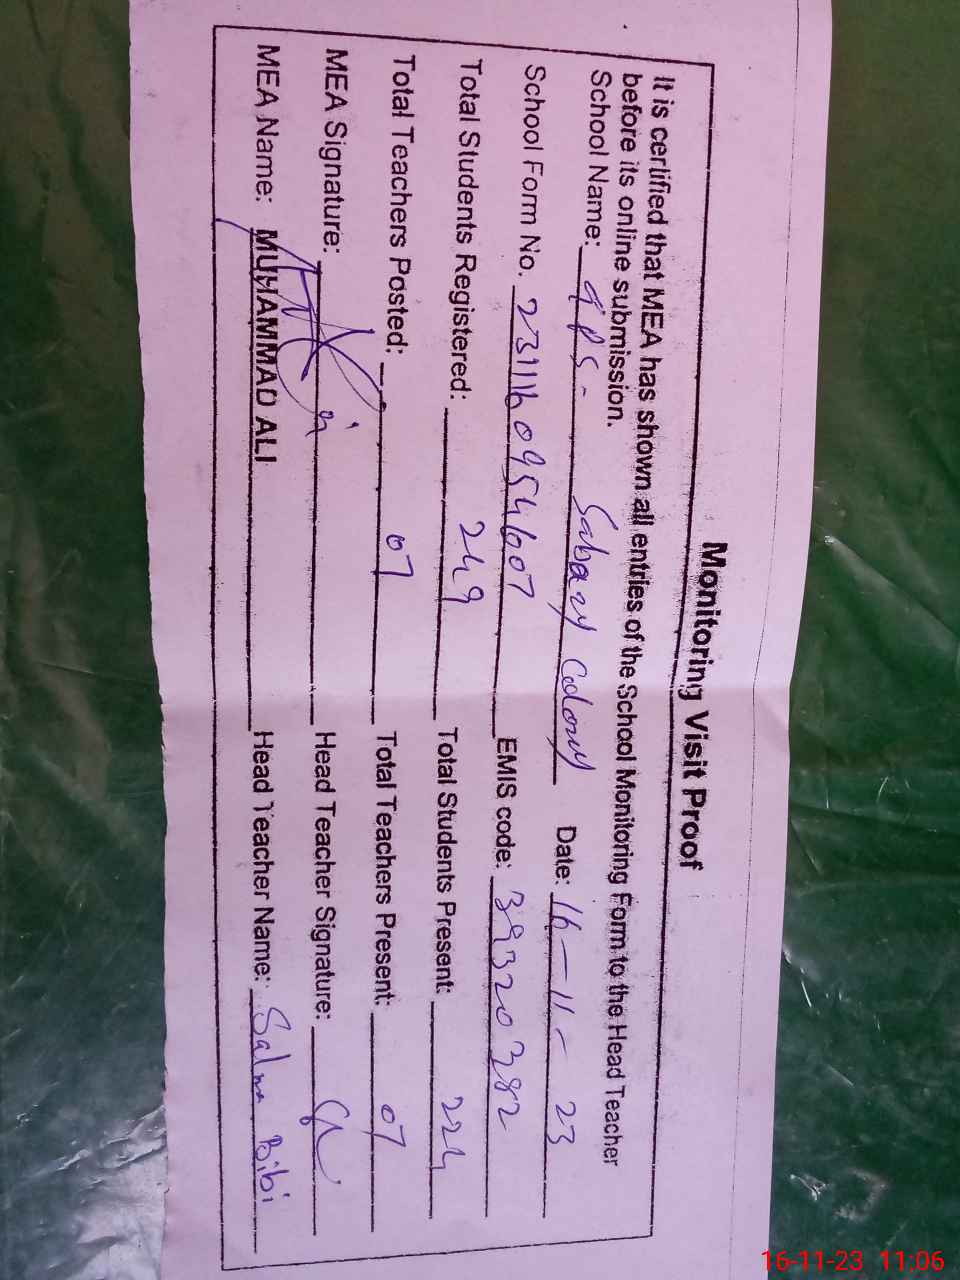 Monitoring Visit Proof
It is certified that MEA has shown all entries of the School Monitoring Form to the Head Teacher
before its online submission.
School Name: GPS - Sabazy Colony Date: 16-11-23
School Form No. 231116 0954607 EMIS code: 39320382
Total Students Registered: 249 Total Students Present: 224
Total Teachers Posted: 07 Total Teachers Present: 07
MEA Signature: Head Teacher Signature:
MEA Name: MUHAMMAD ALI Head Teacher Name: Salma Bibi
16-11-23 11:06